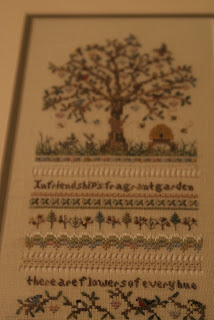 In friendship's fragrant garden
there are flowers of every hue